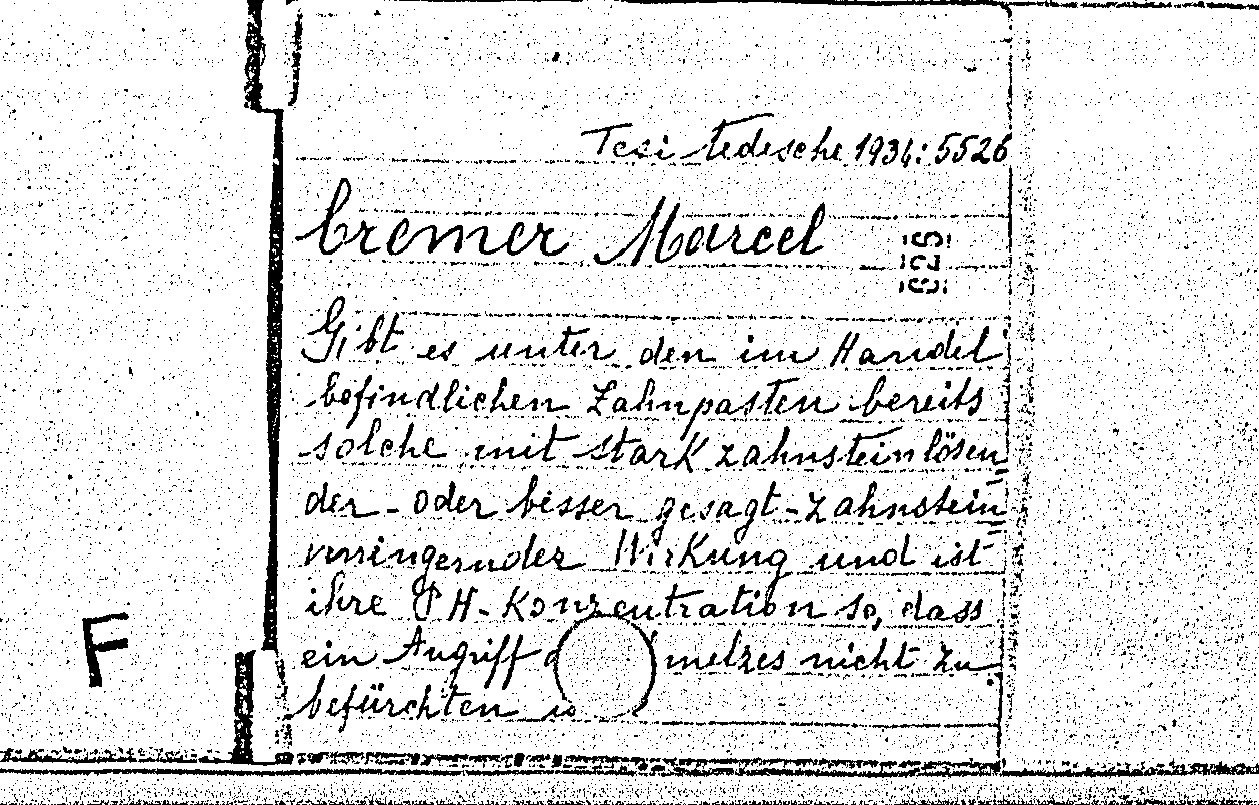 Tesi tedesche 1934: 5526
Cremer Marcel
Gibt es unter den im Handel
befindlichen Zahnpasten bereits
solche mit stark zahnsteinlösen=
der - oder besser gesagt - Zahnstein=
verringernder Wirkung und ist
ihre PH-Konzentration so, dass
ein Angriff melzes nicht zu
befürchten
F